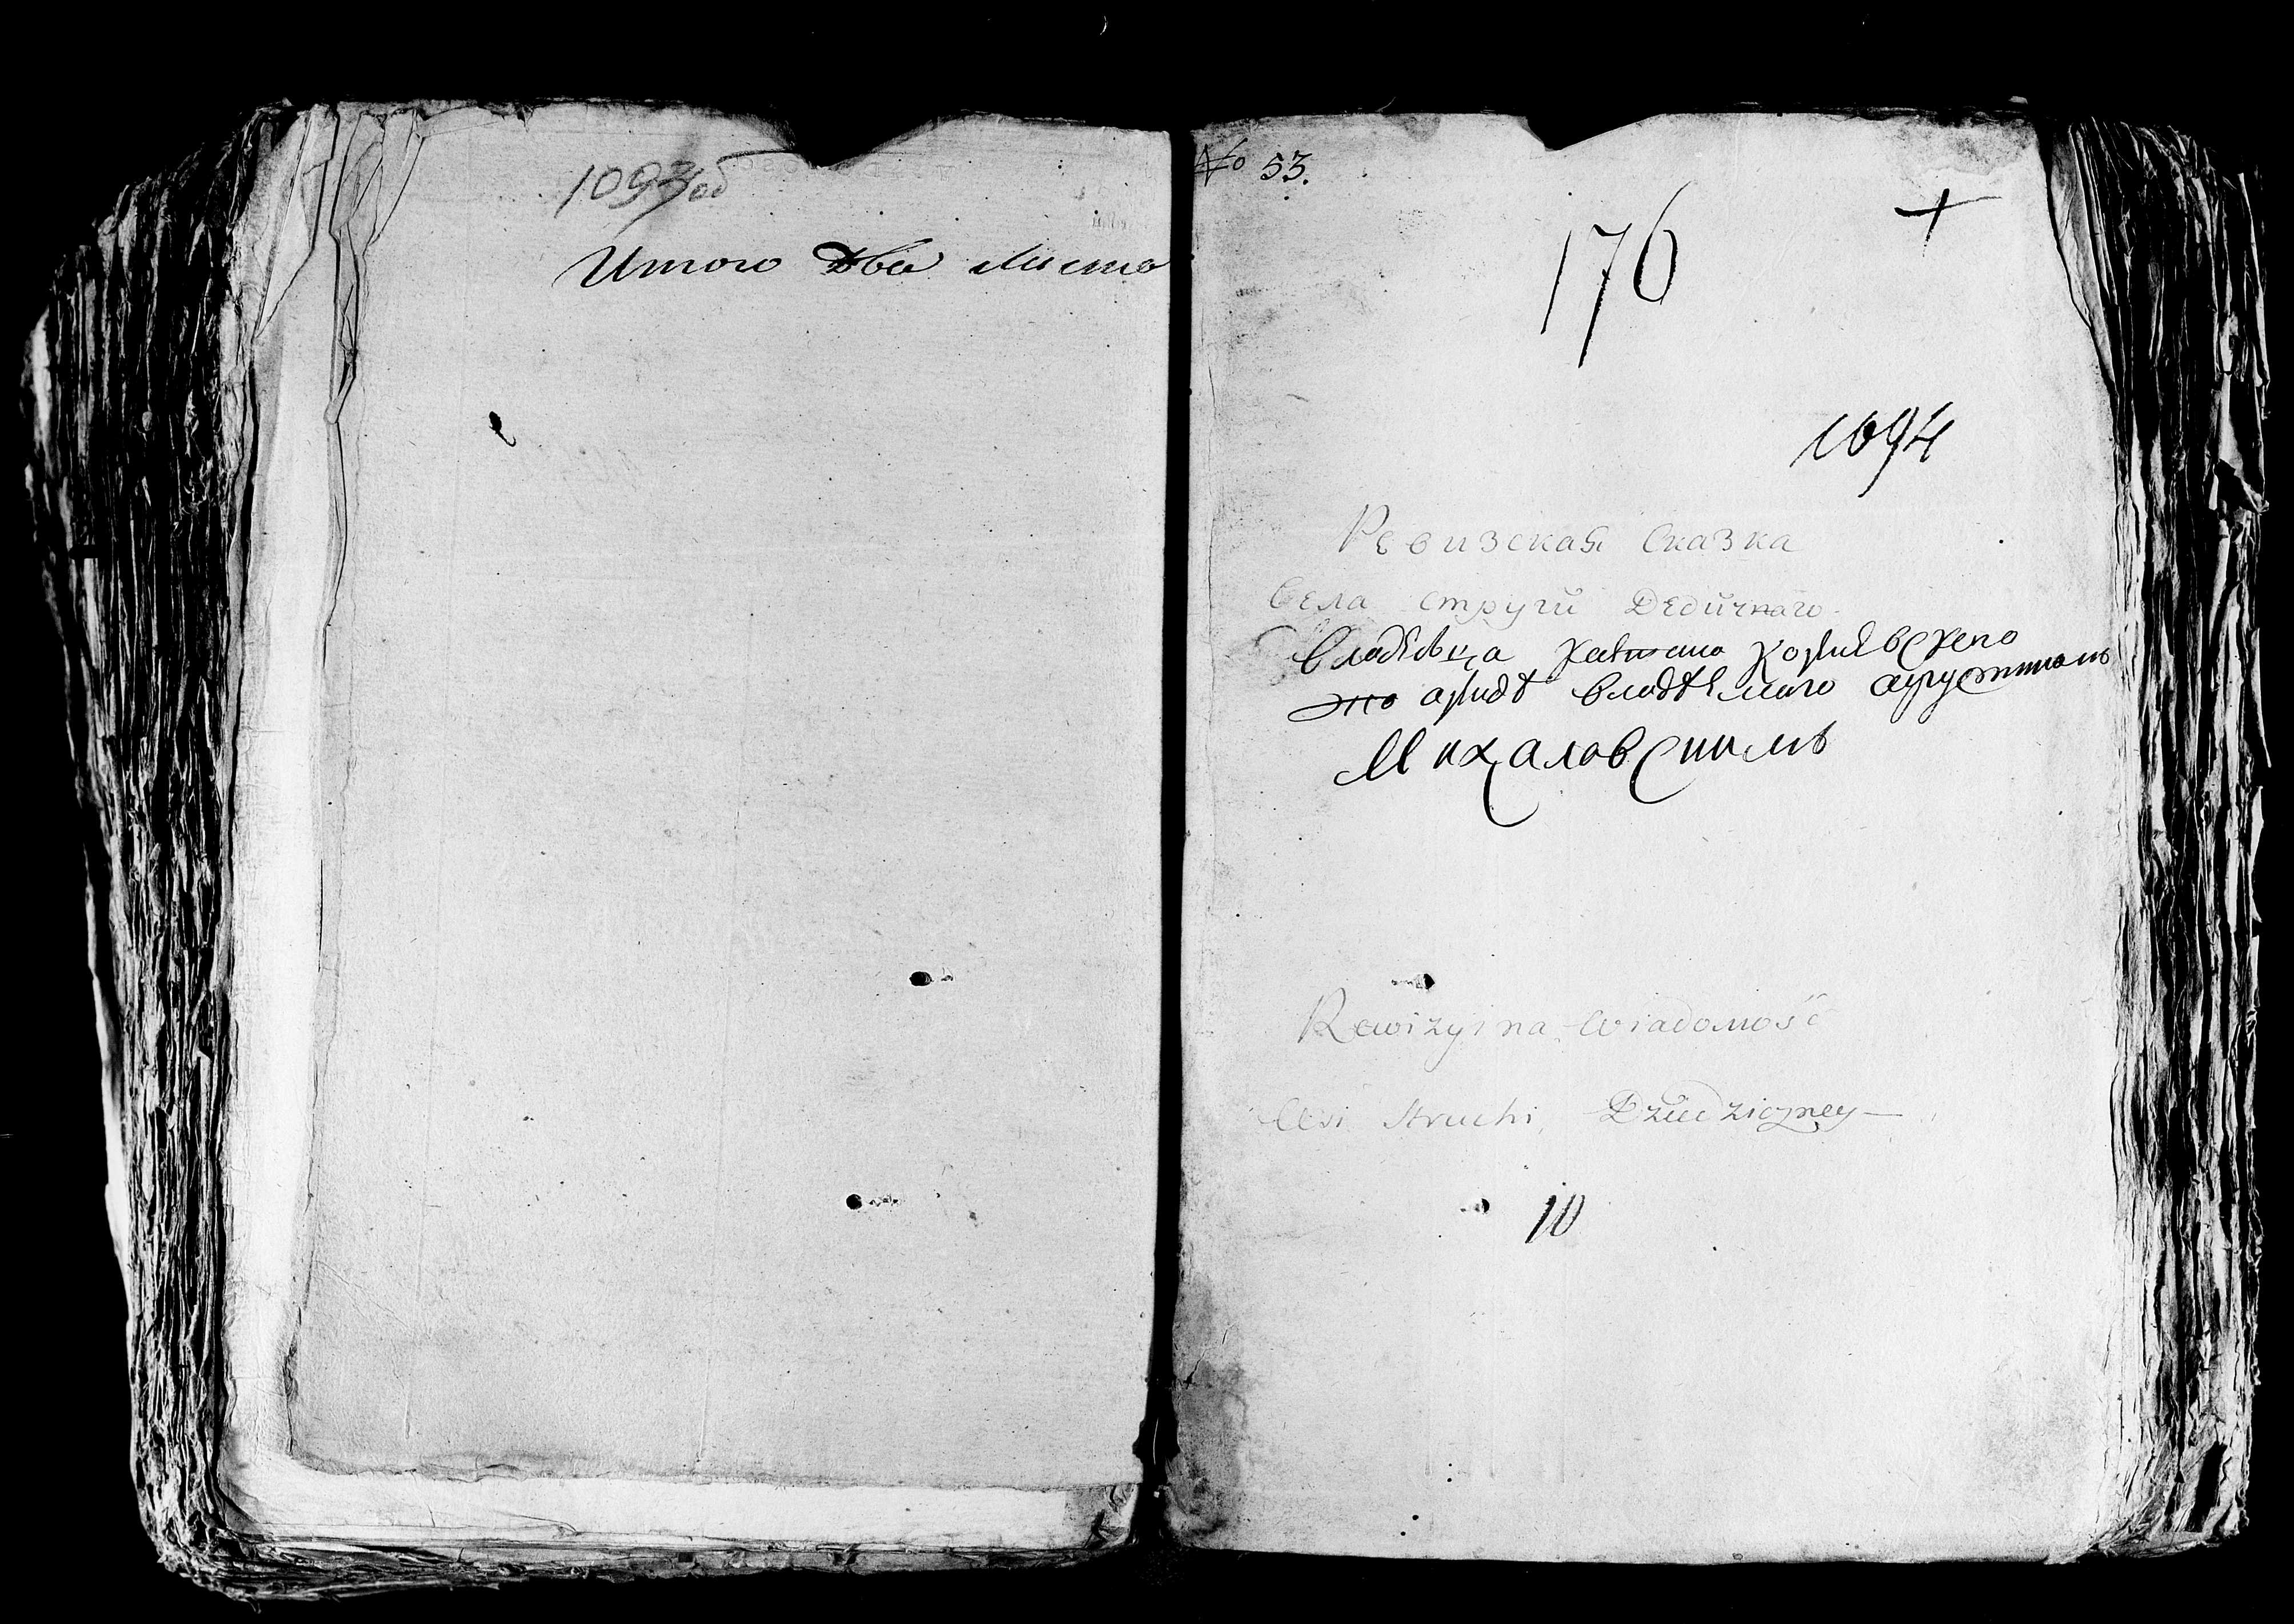 1093об
Итого два листа
№ 53.
176
+
1094
Ревизская Сказка
Села струги Дедичнаго
Владѣльца Каетана
арендѣ владѣемаго
Михаловскимъ
Rewizyina Wiadomość
Wsi Struchi, Dziedziczney
10